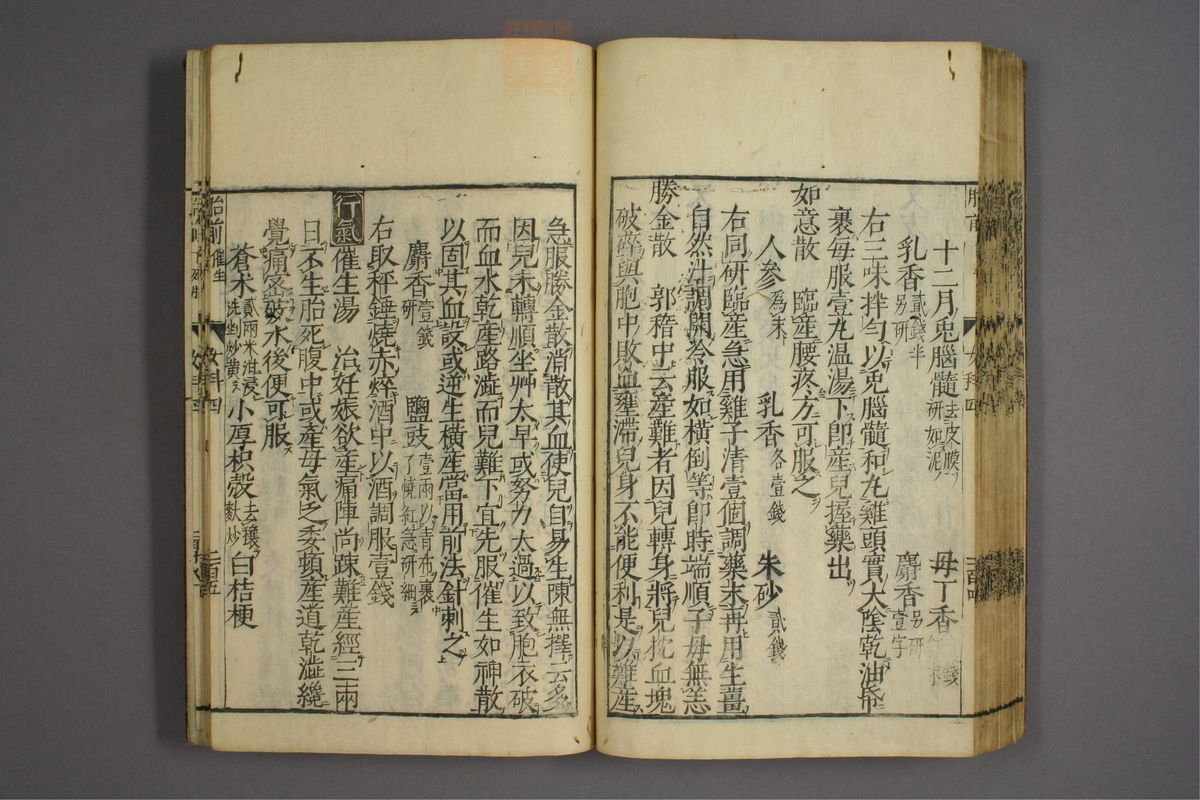 十二月兎腦髓去皮膜研如泥 母丁香另研
乳香貳錢半另研 麝香壹字
右三味拌勻以兎腦髓和丸雞頭實大陰乾油𥿄
裹每服壹丸溫湯下卽産兒握藥出
如意散 臨産腰疼方可服之
人參為末 乳香各壹錢 朱砂貳錢
右同研臨産急用雞子清壹個調藥末再用生薑
自然汁調開冷服如橫倒等卽時端順子母無恙
勝金散 郭稽中云産難者因兒轉身將兒枕血塊
破碎與胞中敗血壅滯兒身不能便利是以難産
急服勝金散消散其血使兒自易生陳無擇云多
因兒未轉順坐艸太早或努力太過以致胞衣破
而血水乾産路澁而兒難下宜先服催生如神散
以固其血設或逆生橫産當用前法針刺之
麝香壹錢研 鹽豉壹兩以青布裹了燒紅急研細
右取秤錘燒赤焠酒中以酒調服壹錢
行氣 催生湯 治妊娠欲産痛陣尚踈難産經三兩
日不生胎死腹中或產母氣乏委頓産道乾澁纔
覺痛密破水後便可服
蒼朮貳兩米泔浸洗坐炒黄 小厚枳殼去穰麩炒 白桔梗
胎前 催生
女科四